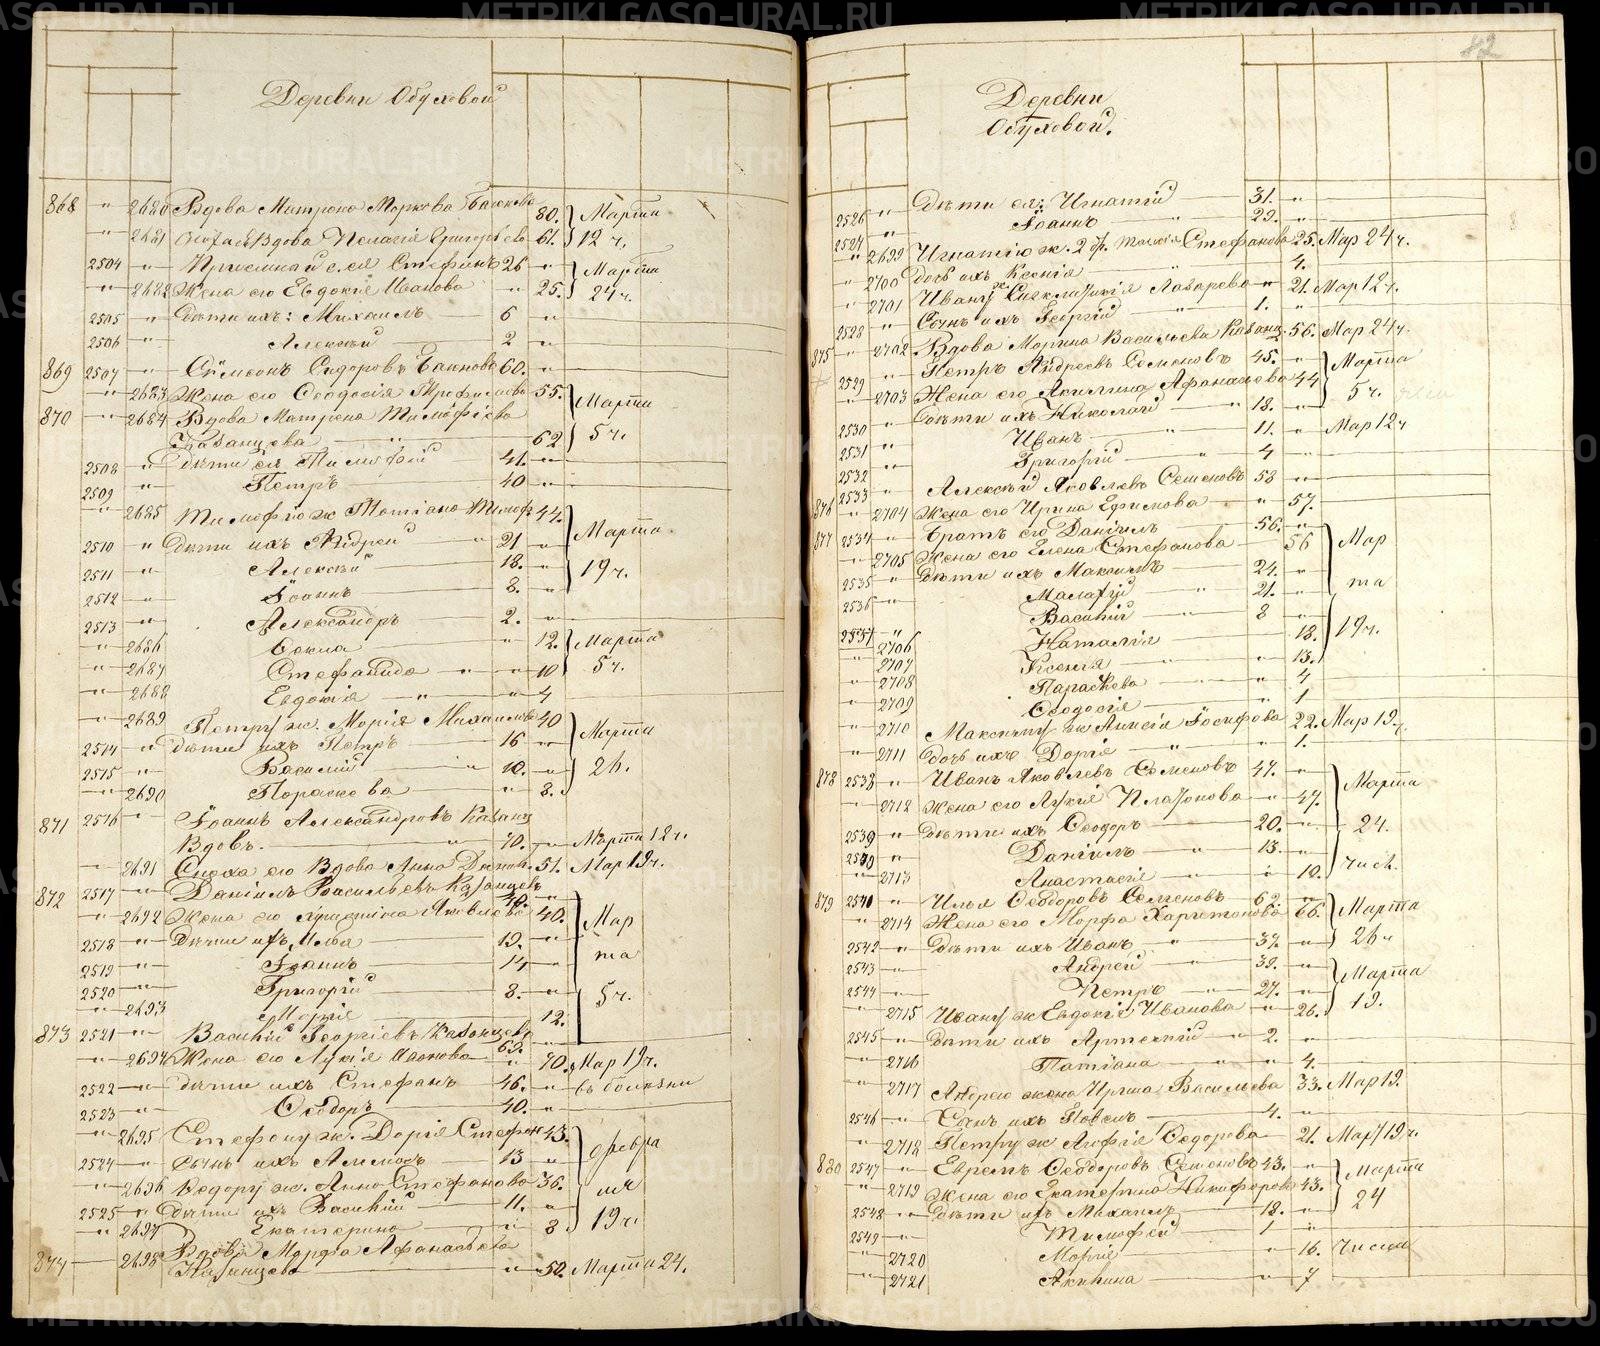 Деревни Обуховой
868 " 2680 Вдова Матрона Маркова 80. Марта
" 2681 Вдова Пелагія Григорьева 61. 12 ч.
2504 " Стефанъ 26 " Марта
" 2682 Жена его Евдокія Иванова " 25. 24 ч.
2505 " Дѣти ихъ: Михаилъ 6 "
2506 " Алексѣй 2 "
869 2507 " Сѵмеонъ Сидоровъ 60. "
" 2683 Жена его Ѳеодосія 55. Марта
870 " 2684 Вдова Матрена Тимофѣева
Казанцева " 62 5 ч.
2508 " Дѣти ея Тимофей 41. "
2509 " Петръ 40 "
" 2685 Тимофею ж Татіана 44. Марта
2510 " Дѣти ихъ Андрей " 21 "
2511 " Алексѣй 18. " 19 ч.
2512 " Іоаннъ 8. "
2513 " Александръ 2. "
" 2686 " 12. Марта
" 2687 Стефанида " " 10 5 ч.
" 2688 Евдокія " " 4
" 2689 Петру ж. Марія Михаилова 40 Марта
2514 " Дѣти ихъ Петръ 16 "
2515 " Василій " 10. " 26.
" 2690 Параскева " 8.
871 2516 " Іоаннъ Александровъ Казанц
Вдовъ. " 70. " Марта 12 ч.
" 2691 Сноха его Вдова Анна 51. Мар 19 ч.
872 2517 " Даніилъ Васильевъ Казанцевъ
" 2692 Жена его Христина Яковлева 40. Мар
2518 " Дѣти ихъ Илья 19. "
2519 " Іоаннъ 14 " та
2520 " Григорій 8. "
" 2693 Марія 12. 5 ч.
873 2521 " Василій Георгіевъ Казанцевъ 69. "
" 2694 Жена его Лукія " 70. Мар 19 ч.
2522 " Дѣти ихъ Стефанъ 46. " въ болѣзни
2523 " Ѳеодоръ 40. "
" 2695 Стефану ж. Дарія Стефан 43. Февра
2524 " Сынъ ихъ 13 "
" 2696 Ѳедору ж. Анна Стефанова 36. ля
2525 " Дѣти ихъ Василій 11. "
" 2697 Екатерина " 8 19 ч.
874 2698 Вдова Марфа Афанасьева
Казанцева " 50. Марта 24.
82
Деревни
Обуховой.
2526 " Дѣти ея: Игнатій 31. "
2527 " Іоаннъ " 29. "
" 2699 Игнатію ж. 2 бр. Стефанова 25. Мар 24 ч.
" 2700 Дочь ихъ Ксенія " 4.
" 2701 Ивану ж Лазарева " 21. Мар 12 ч.
2528 " Сынъ ихъ Георгій " 1. "
875 " 2702 Вдова Марина Васильева Казанц. 56. Мар 24 ч.
2529 " Петръ Андреевъ Семеновъ 45. " Марта
" 2703 Жена его Акилина Афанасева 44 5 ч.
2530 " Дѣти ихъ Николай " 18. "
2531 " Иванъ " 11. " Мар 12 ч
2532 " Григорій " 4 "
876 2533 " Алексѣй Яковлевъ Семеновъ 58 "
" 2704 Жена его Ирина Ефимова " 57.
877 2534 " Братъ его Даніилъ 56. "
" 2705 Жена его Елена Стефанова 56 Мар
2535 " Дѣти ихъ Максимъ 24. "
2536 " Малафій " 21. " та
2537 " Василій " 8 "
" 2706 Наталія 18. 19 ч.
" 2707 Ксенія " " 13.
" 2708 Параскева " 4
" 2709 Ѳеодосія " 1
" 2710 Максиму ж Анисія Іосифова 22. Мар 19.
" 2711 Дочь ихъ Дарія " " 1.
878 2538 " Иванъ Яковлевъ Семеновъ 47. " Марта
" 2712 Жена его Лукія Платонова " 47.
2539 " Дѣти ихъ Ѳеодоръ 20. " 24.
2540 " Даніилъ " 13. "
" 2713 Анастасія " " 10. числ.
879 2541 " Илья Ѳеодоровъ Семеновъ 62. " Марта
" 2714 Жена его Марфа Харитонова 66. 26 ч
2542 " Дѣти ихъ Иванъ " 37. "
2543 " Андрей " 32. " Марта
2544 " Петръ " 27. "
" 2715 Ивану ж Евдокія Иванова " 26. 19.
2545 " Дѣти ихъ Артемій " 2. "
" 2716 Татіана " " 4.
" 2717 Андрею жена Ирина Васильева 33. Мар 19.
2546 " Сынъ ихъ Павелъ 4. "
" 2718 Петру ж Агафія Ѳедорова 21. Мар 19 ч.
880 2547 " Ефремъ Ѳеодоровъ Семеновъ 43. " Марта
" 2719 Жена его Екатерина Никифорова 43. 24
2548 " Дѣти ихъ Михаилъ 18. "
2549 " Тимофей 1 "
" 2720 Марія " 16. Числа
" 2721 Акилина " 7